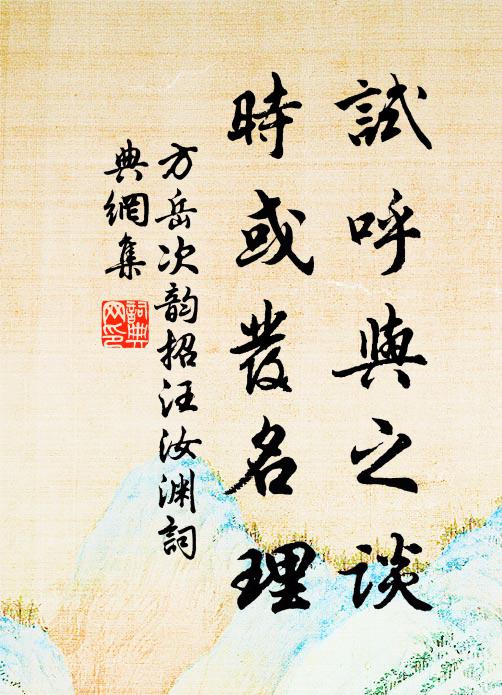 試呼與之談
時或發名理
方岳次韵招汪汝淵詞
典網集
詞典
网印